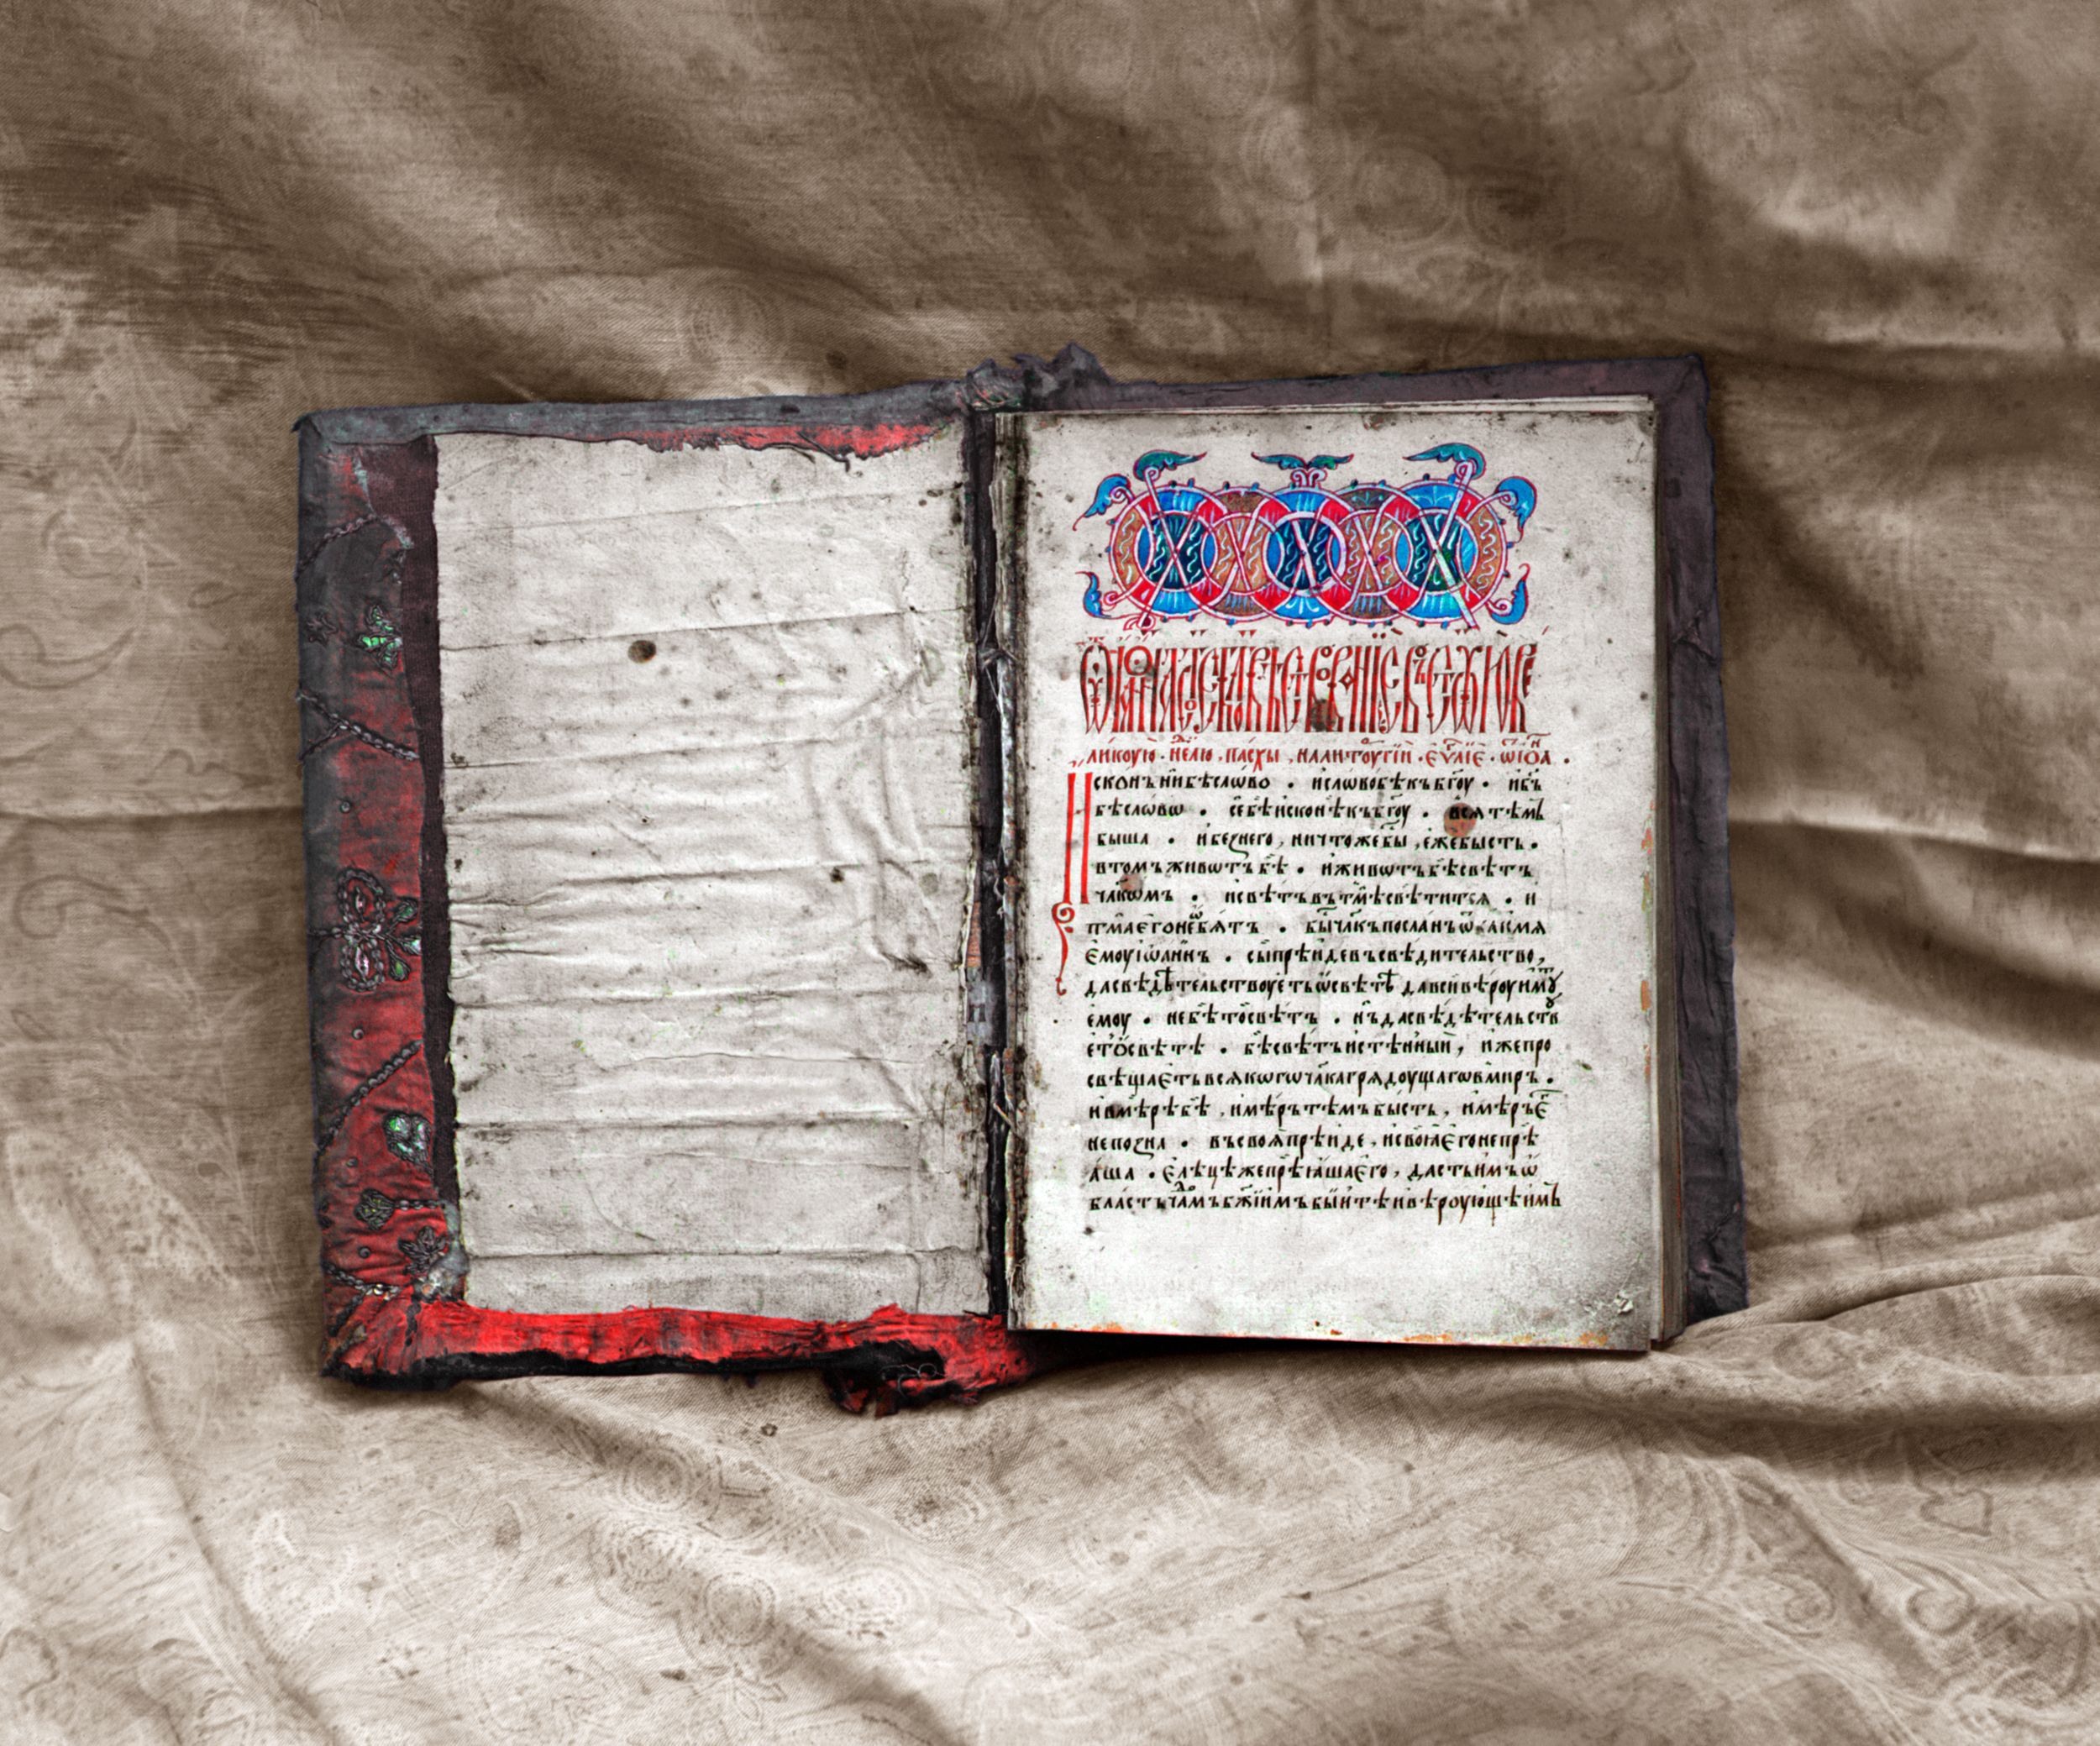 ликоую҆ · не҃лю · пасхы , налитоургїи · еѵⷢ҇лїе · ѿ іѡа .
Искон ъ ни бѣ слѡво · и слѡво бѣ къ бг҃оу · и бг҃ъ
бѣ слѡвѡ · се бѣ искони ѣ къ бг҃оу · вся тѣмь
быша · и безнего , ничтоже бы , еже бысть ·
втомъ живѡтъ бѣ · и живѡтъ бѣ свѣтъ
чл҃кѡмъ · и свѣтъ въ тмѣ свѣтится · и
тма его не ѡбятъ · бы чл҃къ посланъ ѿ имя
емоу іѡаннъ · сы прѣиде въ свѣдительство ,
да свѣдѣтельствоуеть ѿ свѣтѣ да вси вѣроу имꙋ
емоу · не бѣ то свѣтъ · нъ да свѣдѣтельств
ет ѿ свѣтѣ · бѣ свѣтъ истѣнный , иже про
свѣщаеть всякого чл҃ка грядоущаго в миръ ·
и в мѣрѣ бѣ , и мѣръ тѣмъ бысть , и мѣръ е҆
не позна · въ своя прѣиде , и свои его не прѣ
яша · елѣцѣ же прѣяша его , дасть имъ ѡ
бласть чадомъ бж҃їимъ быти и вѣроующѣимъ